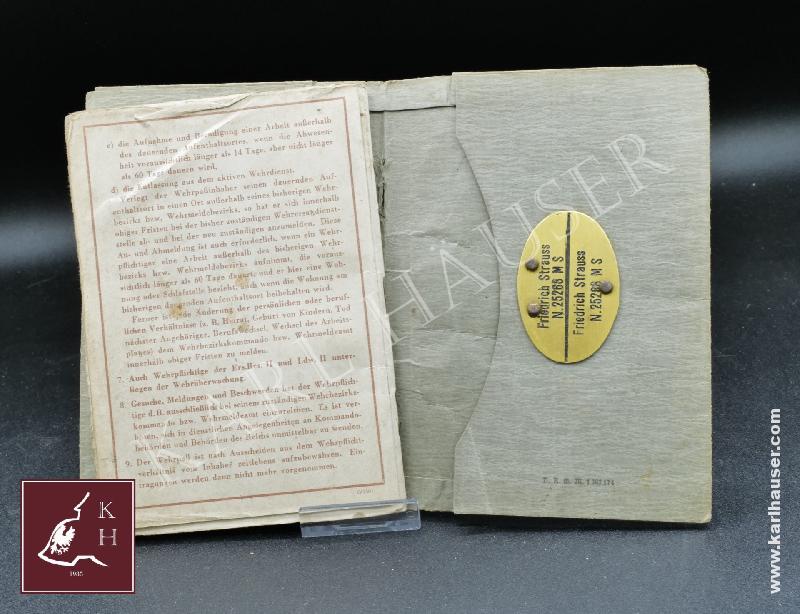 c) die Aufnahme und Beendigung einer Arbeit außerhalb
des dauernden Aufenthaltsortes, wenn die Abwesen-
heit voraussichtlich länger als 14 Tage, aber nicht länger
als 60 Tage dauern wird,
d) die Entlassung aus dem aktiven Wehrdienst.
Verlegt der Wehrpaßinhaber seinen dauernden Auf-
enthaltsort in einen Ort außerhalb seines bisherigen Wehr-
bezirks bzw. Wehrmeldebezirks, so hat er sich innerhalb
obiger Fristen bei der bisher zuständigen Wehrersatzdienst-
stelle ab- und bei der neu zuständigen anzumelden. Diese
An- und Abmeldung ist auch erforderlich, wenn ein Wehr-
pflichtiger eine Arbeit außerhalb des bisherigen Wehr-
bezirks bzw. Wehrmeldebezirks aufnimmt, die voraus-
sichtlich länger als 60 Tage dauert und er hier eine Woh-
nung oder Schlafstelle bezieht, auch wenn die Wohnung am
bisherigen dauernden Aufenthaltsort beibehalten wird.
Ferner ist jede Änderung der persönlichen oder beruf-
lichen Verhältnisse (z. B. Heirat, Geburt von Kindern, Tod
nächster Angehöriger, Berufswechsel, Wechsel des Arbeits-
platzes) dem Wehrbezirkskommando bzw. Wehrmeldeamt
innerhalb obiger Fristen zu melden.
7. Auch Wehrpflichtige der Ers.Res. II und Ldw. II unter-
liegen der Wehrüberwachung.
8. Gesuche, Meldungen und Beschwerden hat der Wehrpflich-
tige d. B. ausschließlich bei seinem zuständigen Wehrbezirks-
kommando bzw. Wehrmeldeamt einzureichen. Es ist ver-
boten, sich in dienstlichen Angelegenheiten an Kommando-
behörden und Behörden des Reichs unmittelbar zu wenden.
9. Der Wehrpaß ist nach Ausscheiden aus dem Wehrpflicht-
verhältnis vom Inhaber zeitlebens aufzubewahren. Ein-
tragungen werden dann nicht mehr vorgenommen.
Friedrich Strauss
N. 25268 M S
Friedrich Strauss
N. 25268 M S
D. R. G. M. 1361174
KARL HÄUSER
K
H
1985
www.karlhauser.com